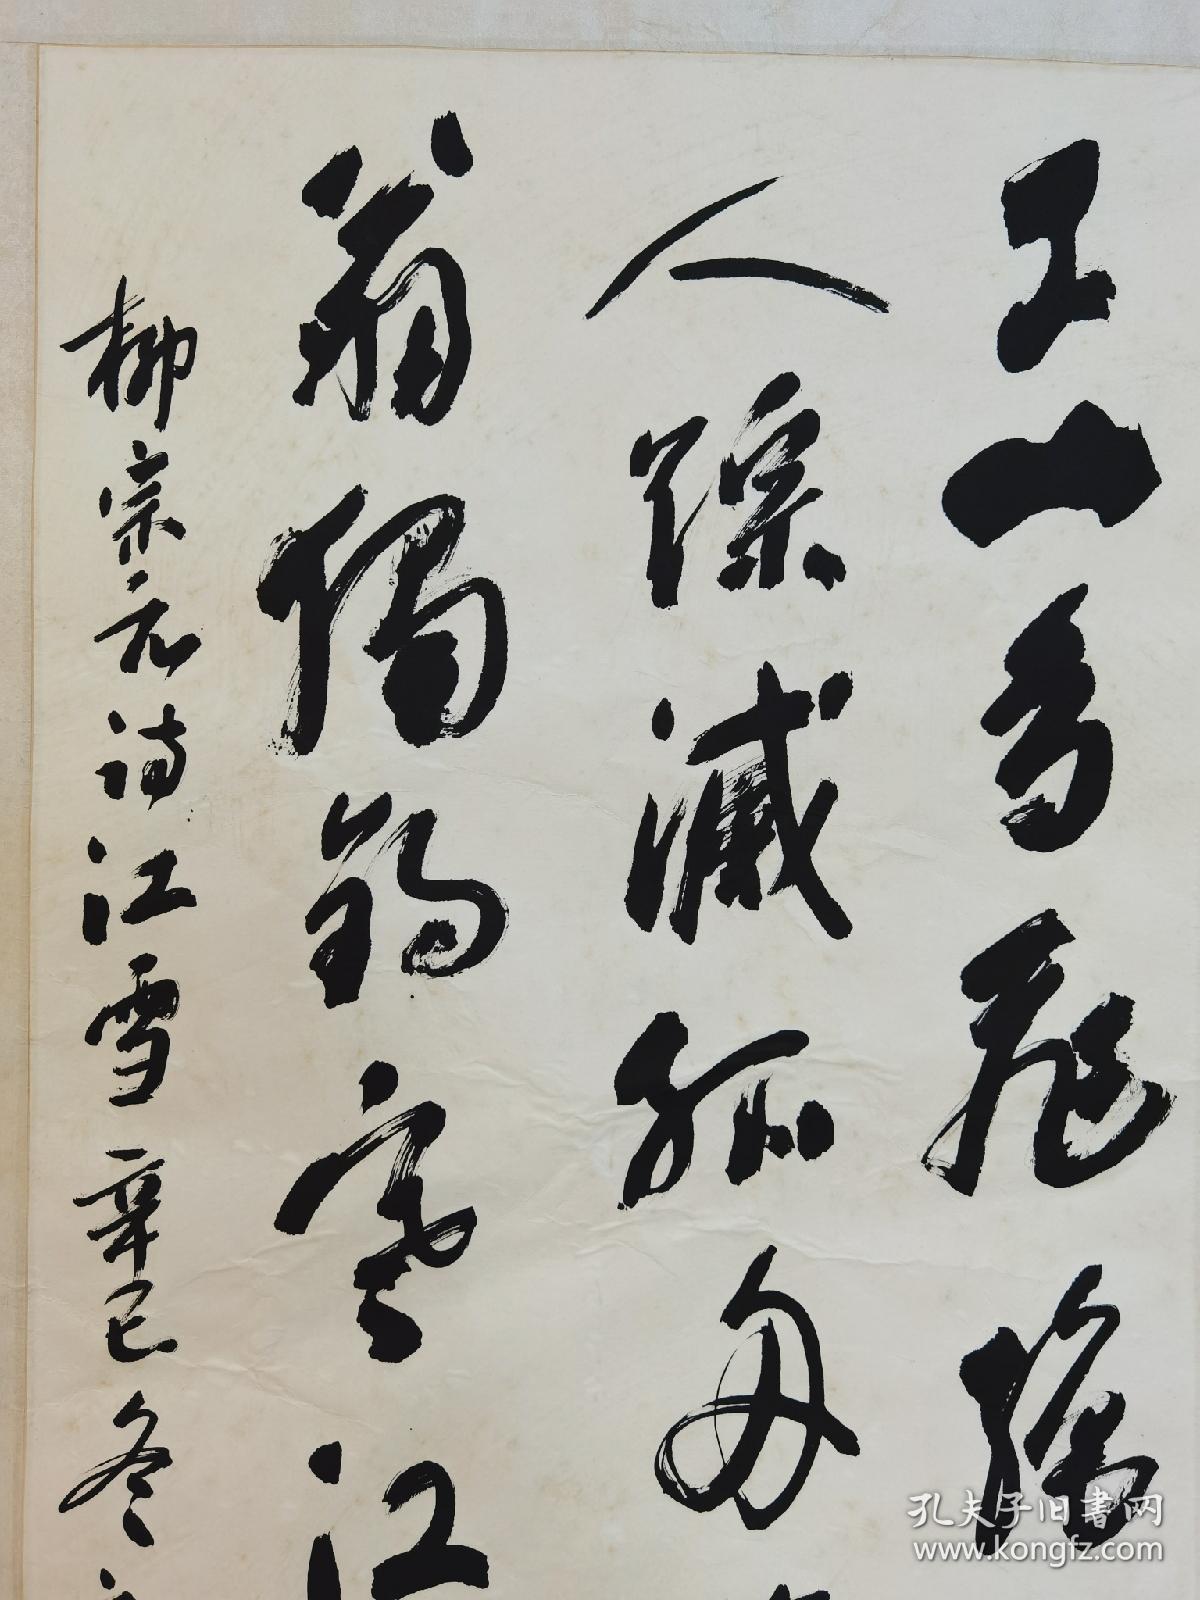 千山鳥飛絕
人踪滅孤舟
翁獨釣寒江
柳宗元诗江雪辛巳冬
孔夫子旧书网
www.kongfz.com